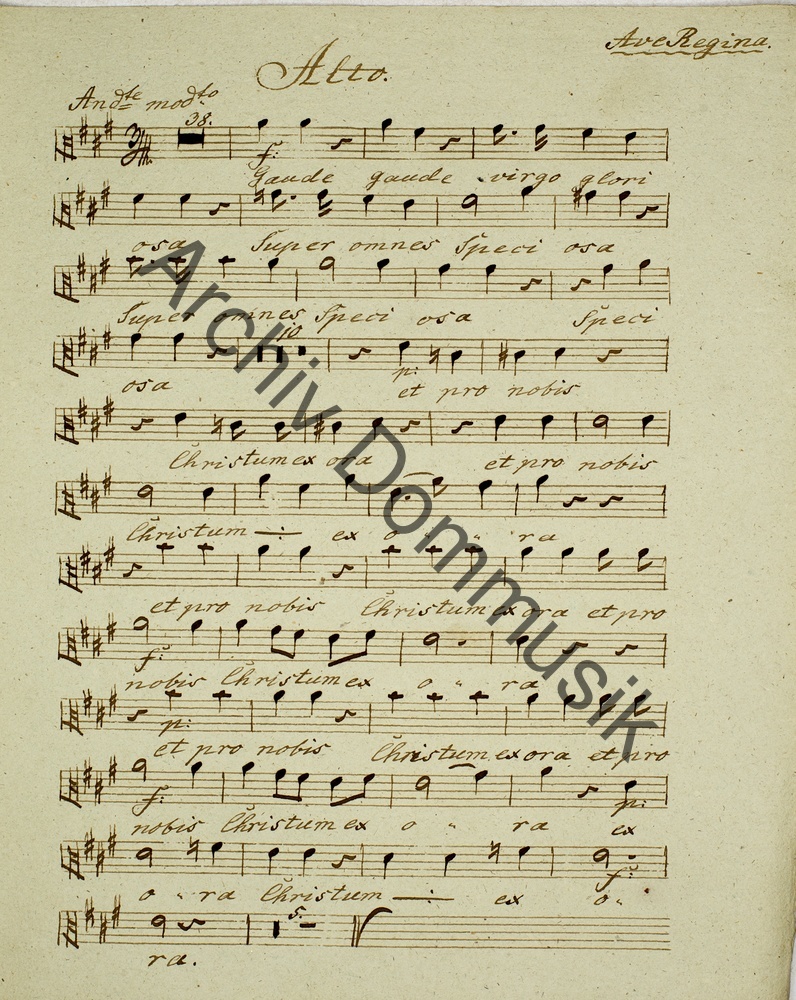 Ave Regina.
Alto.
Andte modto
38.
f:
Gaude gaude virgo glori
osa Super omnes Speci osa
Super omnes Speci osa Speci
10
p:
osa et pro nobis
Christum ex ora et pro nobis
Christum —:— ex o " " ra
et pro nobis Christum ex ora et pro
f:
nobis Christum ex o " ra
p:
et pro nobis Christum ex ora et pro
f: p:
nobis Christum ex o " ra ex
f:
o " ra Christum —:— ex o " "
5.
ra.
Archiv Dommusik